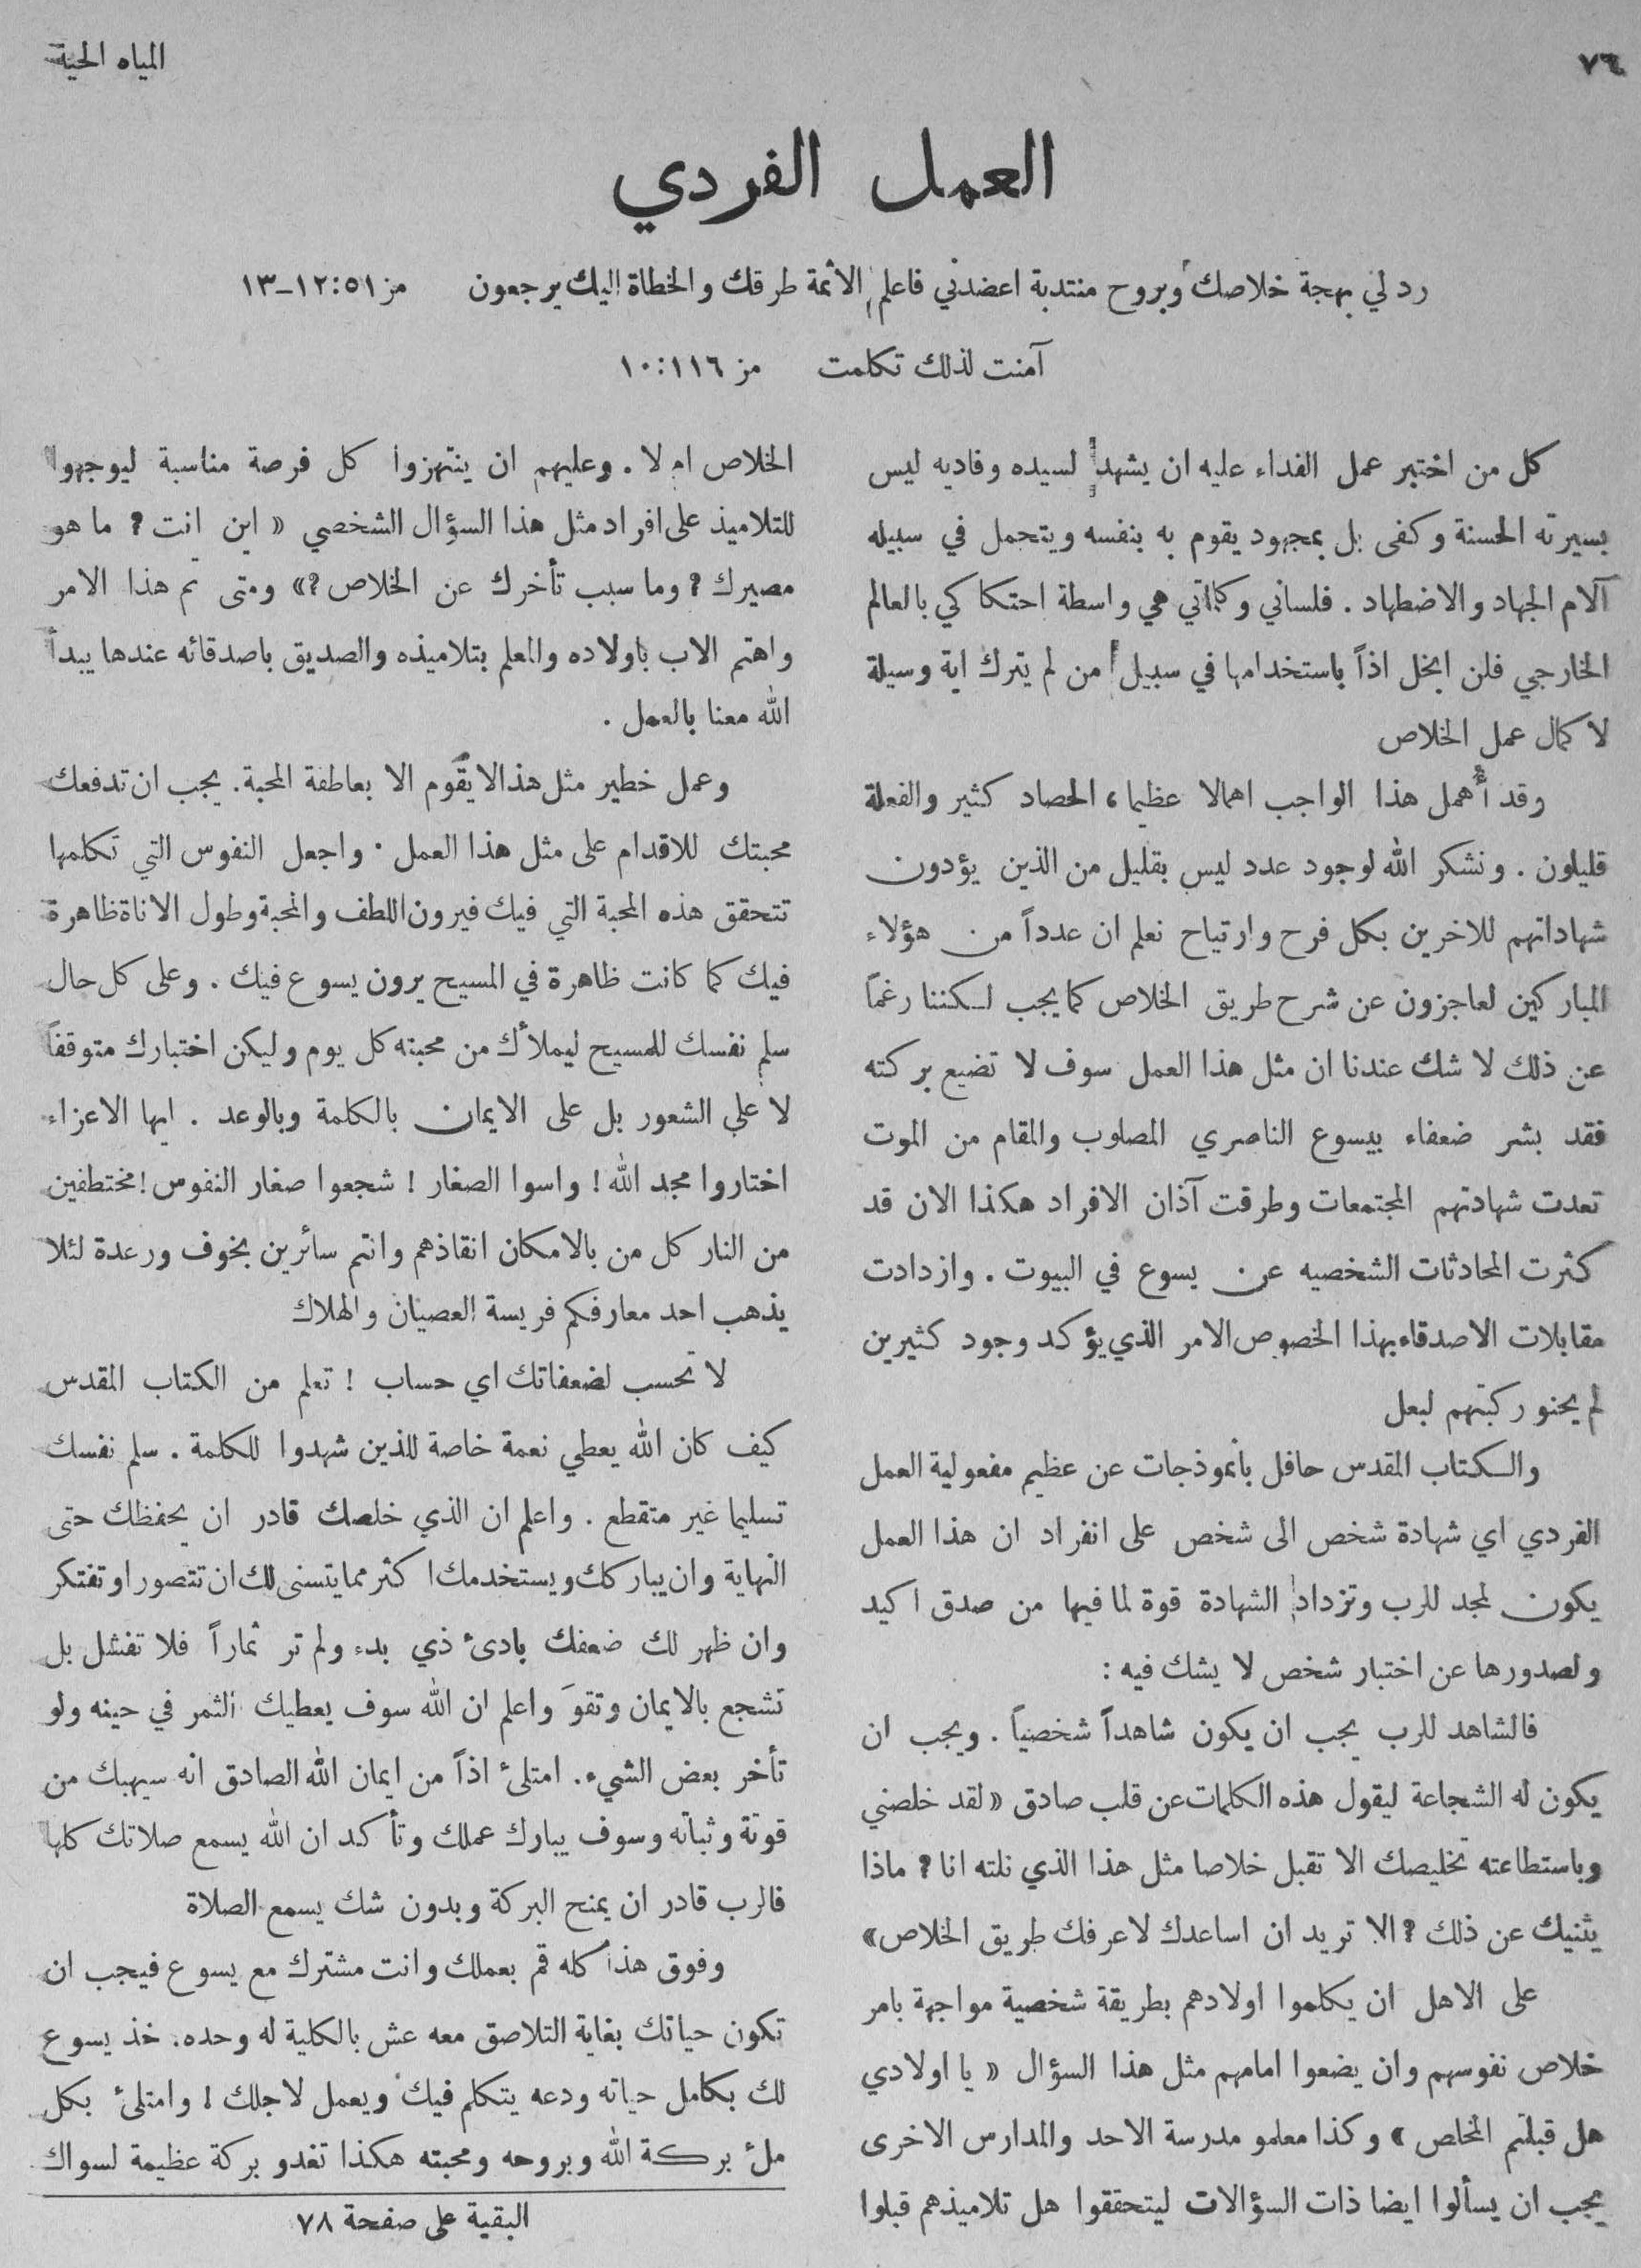 ٧٦
المياه الحية
العمل الفردي
رد لي بهجة خلاصك وبروح منتدبة اعضدني فاعلم الاثمة طرقك والخطاة اليك يرجعون مز ٥١:١٢-١٣
آمنت لذلك تكلمت مز ١١٦:١٠
كل من اختبر عمل الفداء عليه ان يشهد لسيده وفاديه ليس
بسيرته الحسنة وكفى بل بمجهود يقوم به بنفسه ويتحمل في سبيله
آلام الجهاد والاضطهاد . فلساني وكلماتي هي واسطة احتكاكي بالعالم
الخارجي فلن ابخل اذاً باستخدامها في سبيل من لم يترك اية وسيلة
لاكمال عمل الخلاص
وقد أُهمل هذا الواجب اهمالا عظيما ، الحصاد كثير والفعلة
قليلون . ونشكر الله لوجود عدد ليس بقليل من الذين يؤدون
شهاداتهم للاخرين بكل فرح وارتياح نعلم ان عدداً من هؤلاء
المباركين لعاجزون عن شرح طريق الخلاص كما يجب لكننا رغماً
عن ذلك لا شك عندنا ان مثل هذا العمل سوف لا تضيع بركته
فقد بشر ضعفاء بيسوع الناصري المصلوب والمقام من الموت
تعدت شهادتهم المجتمعات وطرقت آذان الافراد هكذا الان قد
كثرت المحادثات الشخصيه عن يسوع في البيوت . وازدادت
مقابلات الاصدقاء بهذا الخصوص الامر الذي يؤكد وجود كثيرين
لم يحنو ركبتهم لبعل
والكتاب المقدس حافل بأنموذجات عن عظيم مفعولية العمل
الفردي اي شهادة شخص الى شخص على انفراد ان هذا العمل
يكون لمجد للرب وتزداد الشهادة قوة لما فيها من صدق اكيد
ولصدورها عن اختبار شخص لا يشك فيه :
فالشاهد للرب يجب ان يكون شاهداً شخصياً . ويجب ان
يكون له الشجاعة ليقول هذه الكلمات عن قلب صادق « لقد خلصني
وباستطاعته تخليصك الا تقبل خلاصا مثل هذا الذي نلته انا ? ماذا
يثنيك عن ذلك ? الا تريد ان اساعدك لاعرفك طريق الخلاص »
على الاهل ان يكلموا اولادهم بطريقة شخصية مواجهة بامر
خلاص نفوسهم وان يضعوا امامهم مثل هذا السؤال « يا اولادي
هل قبلتم المخلص » وكذا معلمو مدرسة الاحد والمدارس الاخرى
يجب ان يسألوا ايضا ذات السؤالات ليتحققوا هل تلاميذهم قبلوا
الخلاص ام لا . وعليهم ان ينتهزوا كل فرصة مناسبة ليوجهوا
للتلاميذ على افراد مثل هذا السؤال الشخصي « اين انت ? ما هو
مصيرك ? وما سبب تأخرك عن الخلاص ? » ومتى تم هذا الامر
واهتم الاب باولاده والمعلم بتلاميذه والصديق باصدقائه عندها يبدأ
الله معنا بالعمل .
وعمل خطير مثل هذا لا يقوم الا بعاطفة المحبة. يجب ان تدفعك
محبتك للاقدام على مثل هذا العمل . واجعل النفوس التي تكلمها
تتحقق هذه المحبة التي فيك فيرون اللطف والمحبة وطول الاناة ظاهرة
فيك كما كانت ظاهرة في المسيح يرون يسوع فيك . وعلى كل حال
سلم نفسك للمسيح ليملأك من محبته كل يوم وليكن اختبارك متوقفاً
لا على الشعور بل على الايمان بالكلمة وبالوعد . ايها الاعزاء
اختاروا مجد الله ! واسوا الصغار ! شجعوا صغار النفوس ! مختطفين
من النار كل من بالامكان انقاذهم وانتم سائرين بخوف ورعدة لئلا
يذهب احد معارفكم فريسة العصيان والهلاك
لا تحسب لضعفاتك اي حساب ! تعلم من الكتاب المقدس
كيف كان الله يعطي نعمة خاصة للذين شهدوا للكلمة . سلم نفسك
تسليما غير متقطع . واعلم ان الذي خلصك قادر ان يحفظك حتى
النهاية وان يباركك ويستخدمك اكثر مما يتسنى لك ان تتصور او تفتكر
وان ظهر لك ضعفك بادئ ذي بدء ولم تر ثماراً فلا تفشل بل
تشجع بالايمان وتقوَ واعلم ان الله سوف يعطيك الثمر في حينه ولو
تأخر بعض الشيء. امتلئ اذاً من ايمان الله الصادق انه سيهبك من
قوته وثباته وسوف يبارك عملك وتأكد ان الله يسمع صلاتك كلها
فالرب قادر ان يمنح البركة وبدون شك يسمع الصلاة
وفوق هذا كله قم بعملك وانت مشترك مع يسوع فيجب ان
تكون حياتك بغاية التلاصق معه عش بالكلية له وحده. خذ يسوع
لك بكامل حياته ودعه يتكلم فيك ويعمل لاجلك ! وامتلئ بكل
ملئ بركة الله وبروحه ومحبته هكذا تغدو بركة عظيمة لسواك
البقية على صفحة ٧٨